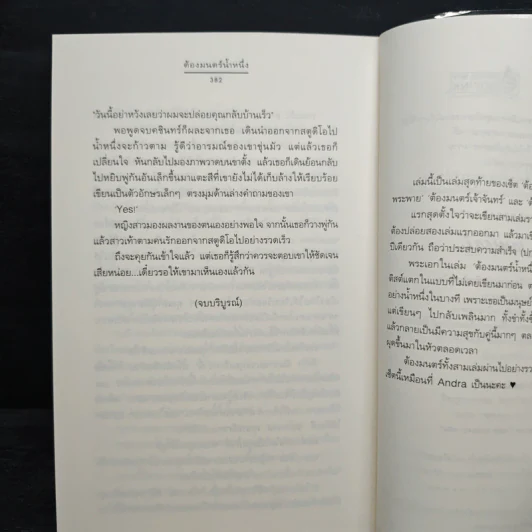 ต้องมนตร์น้ำหนึ่ง
382
'วันนี้อย่าหวังเลยว่าผมจะปล่อยคุณกลับบ้านเร็ว'
พอพูดจบคชินทร์ก็ผละจากเธอ เดินนำออกจากสตูดิโอไป
น้ำหนึ่งจะก้าวตาม รู้ดีว่าอารมณ์ของเขาขุ่นมัว แต่แล้วเธอก็
เปลี่ยนใจ หันกลับไปมองภาพวาดบนขาตั้ง แล้วเธอก็เดินย้อนกลับ
ไปหยิบพู่กันอันเล็กขึ้นมาแตะสีที่เขายังไม่ได้เก็บล้างให้เรียบร้อย
เขียนเป็นตัวอักษรเล็กๆ ตรงมุมด้านล่างคำถามของเขา
'Yes!'
หญิงสาวมองผลงานของตนเองอย่างพอใจ จากนั้นเธอก็วางพู่กัน
แล้วสาวเท้าตามคนรักออกจากสตูดิโอไปอย่างรวดเร็ว
ถึงจะคุยกันเข้าใจแล้ว แต่เธอก็รู้สึกว่าควรจะตอบเขาให้ชัดเจน
เสียหน่อย...เดี๋ยวรอให้เขามาเห็นเองแล้วกัน
(จบบริบูรณ์)
เล่มนี้เป็นเล่มสุดท้ายของเซ็ต 'ต้อ
พระพาย' 'ต้องมนตร์เจ้าจันทร์' และ 'ต้
แรกสุดตั้งใจว่าจะเขียนสามเล่มรว
ต้องปล่อยสองเล่มแรกออกมา แล้วมาเขี
ปีเดียวกัน ถือว่าประสบความสำเร็จ
พระเอกในเล่ม 'ต้องมนตร์น้ำหนึ่
ติสต์แตกในแบบที่ไม่เคยเขียนมาก่อน
อย่างน้ำหนึ่งในบางที เพราะเธอเป็นมนุษย์
แต่เขียนๆ ไปกลับเพลินมาก ทั้งขำทั้ง
แล้วกลายเป็นมีความสุขกับคู่นี้มากๆ
ผุดขึ้นมาในหัวตลอดเวลา
ต้องมนตร์ทั้งสามเล่มผ่านไปอย่าง
เซ็ตนี้เหมือนที่ Andra เป็นนะคะ ♥